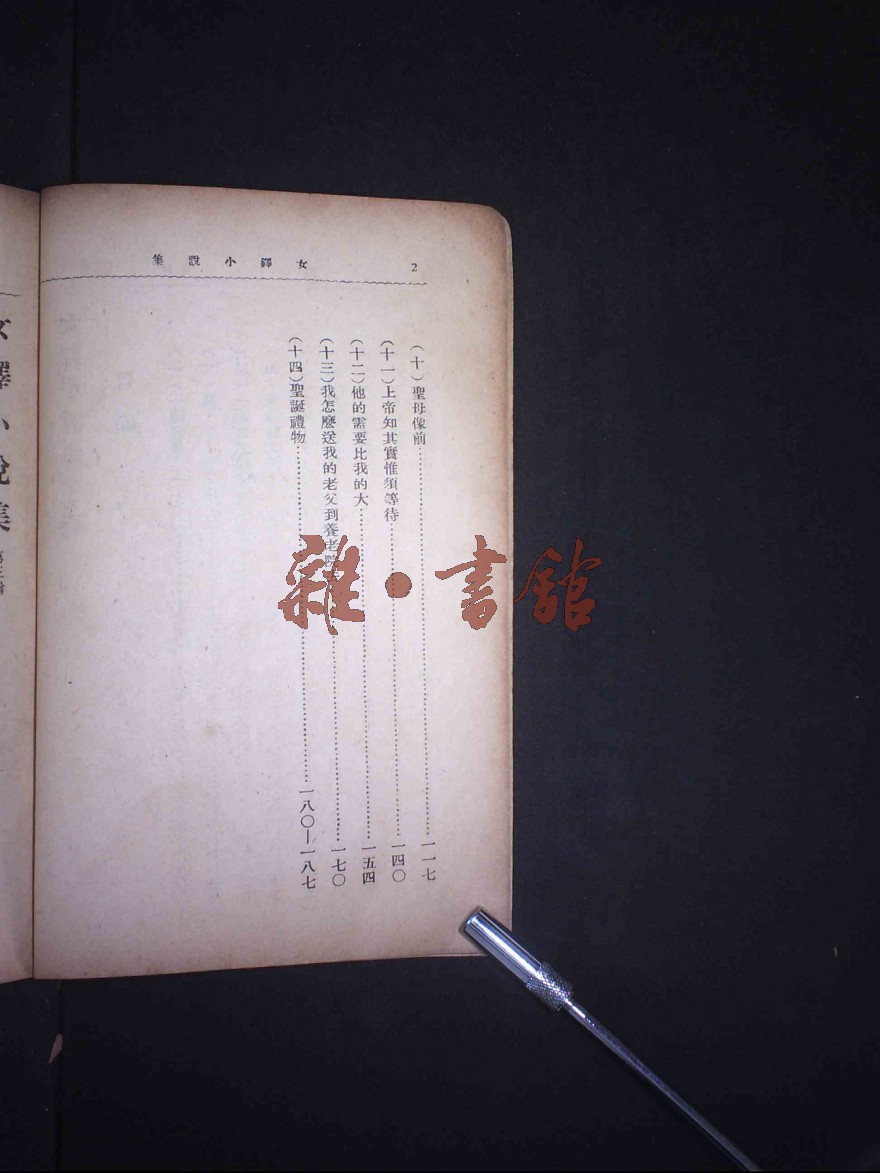 2 女鐸小說集
(十)聖母像前……一一七
(十一)上帝知其實惟須等待……一四〇
(十二)他的需要比我的大……一五四
(十三)我怎麼送我的老父到養老院……一七〇
(十四)聖誕禮物……一八〇—一八七
女鐸小說集
雜•書館